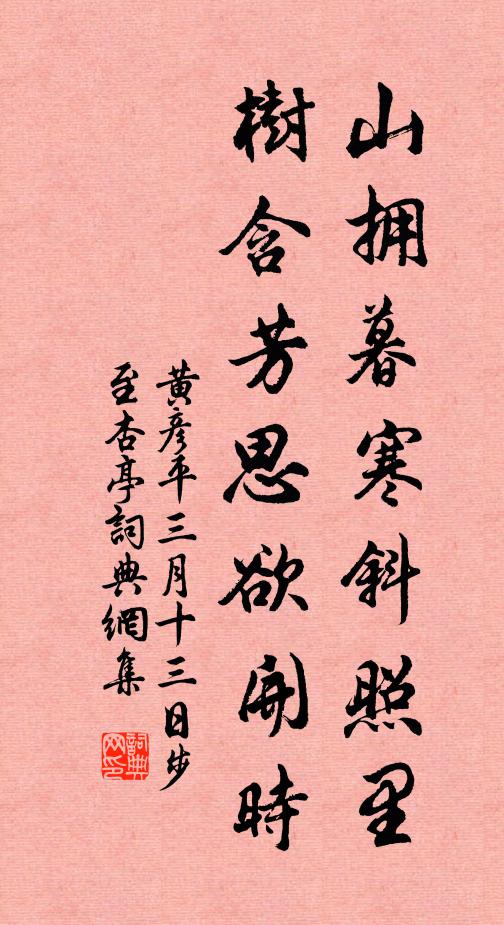 山拥暮寒斜照里
樹含芳思欲開時
黄彦平三月十三日步
至杏亭詞典網集
詞典
网印